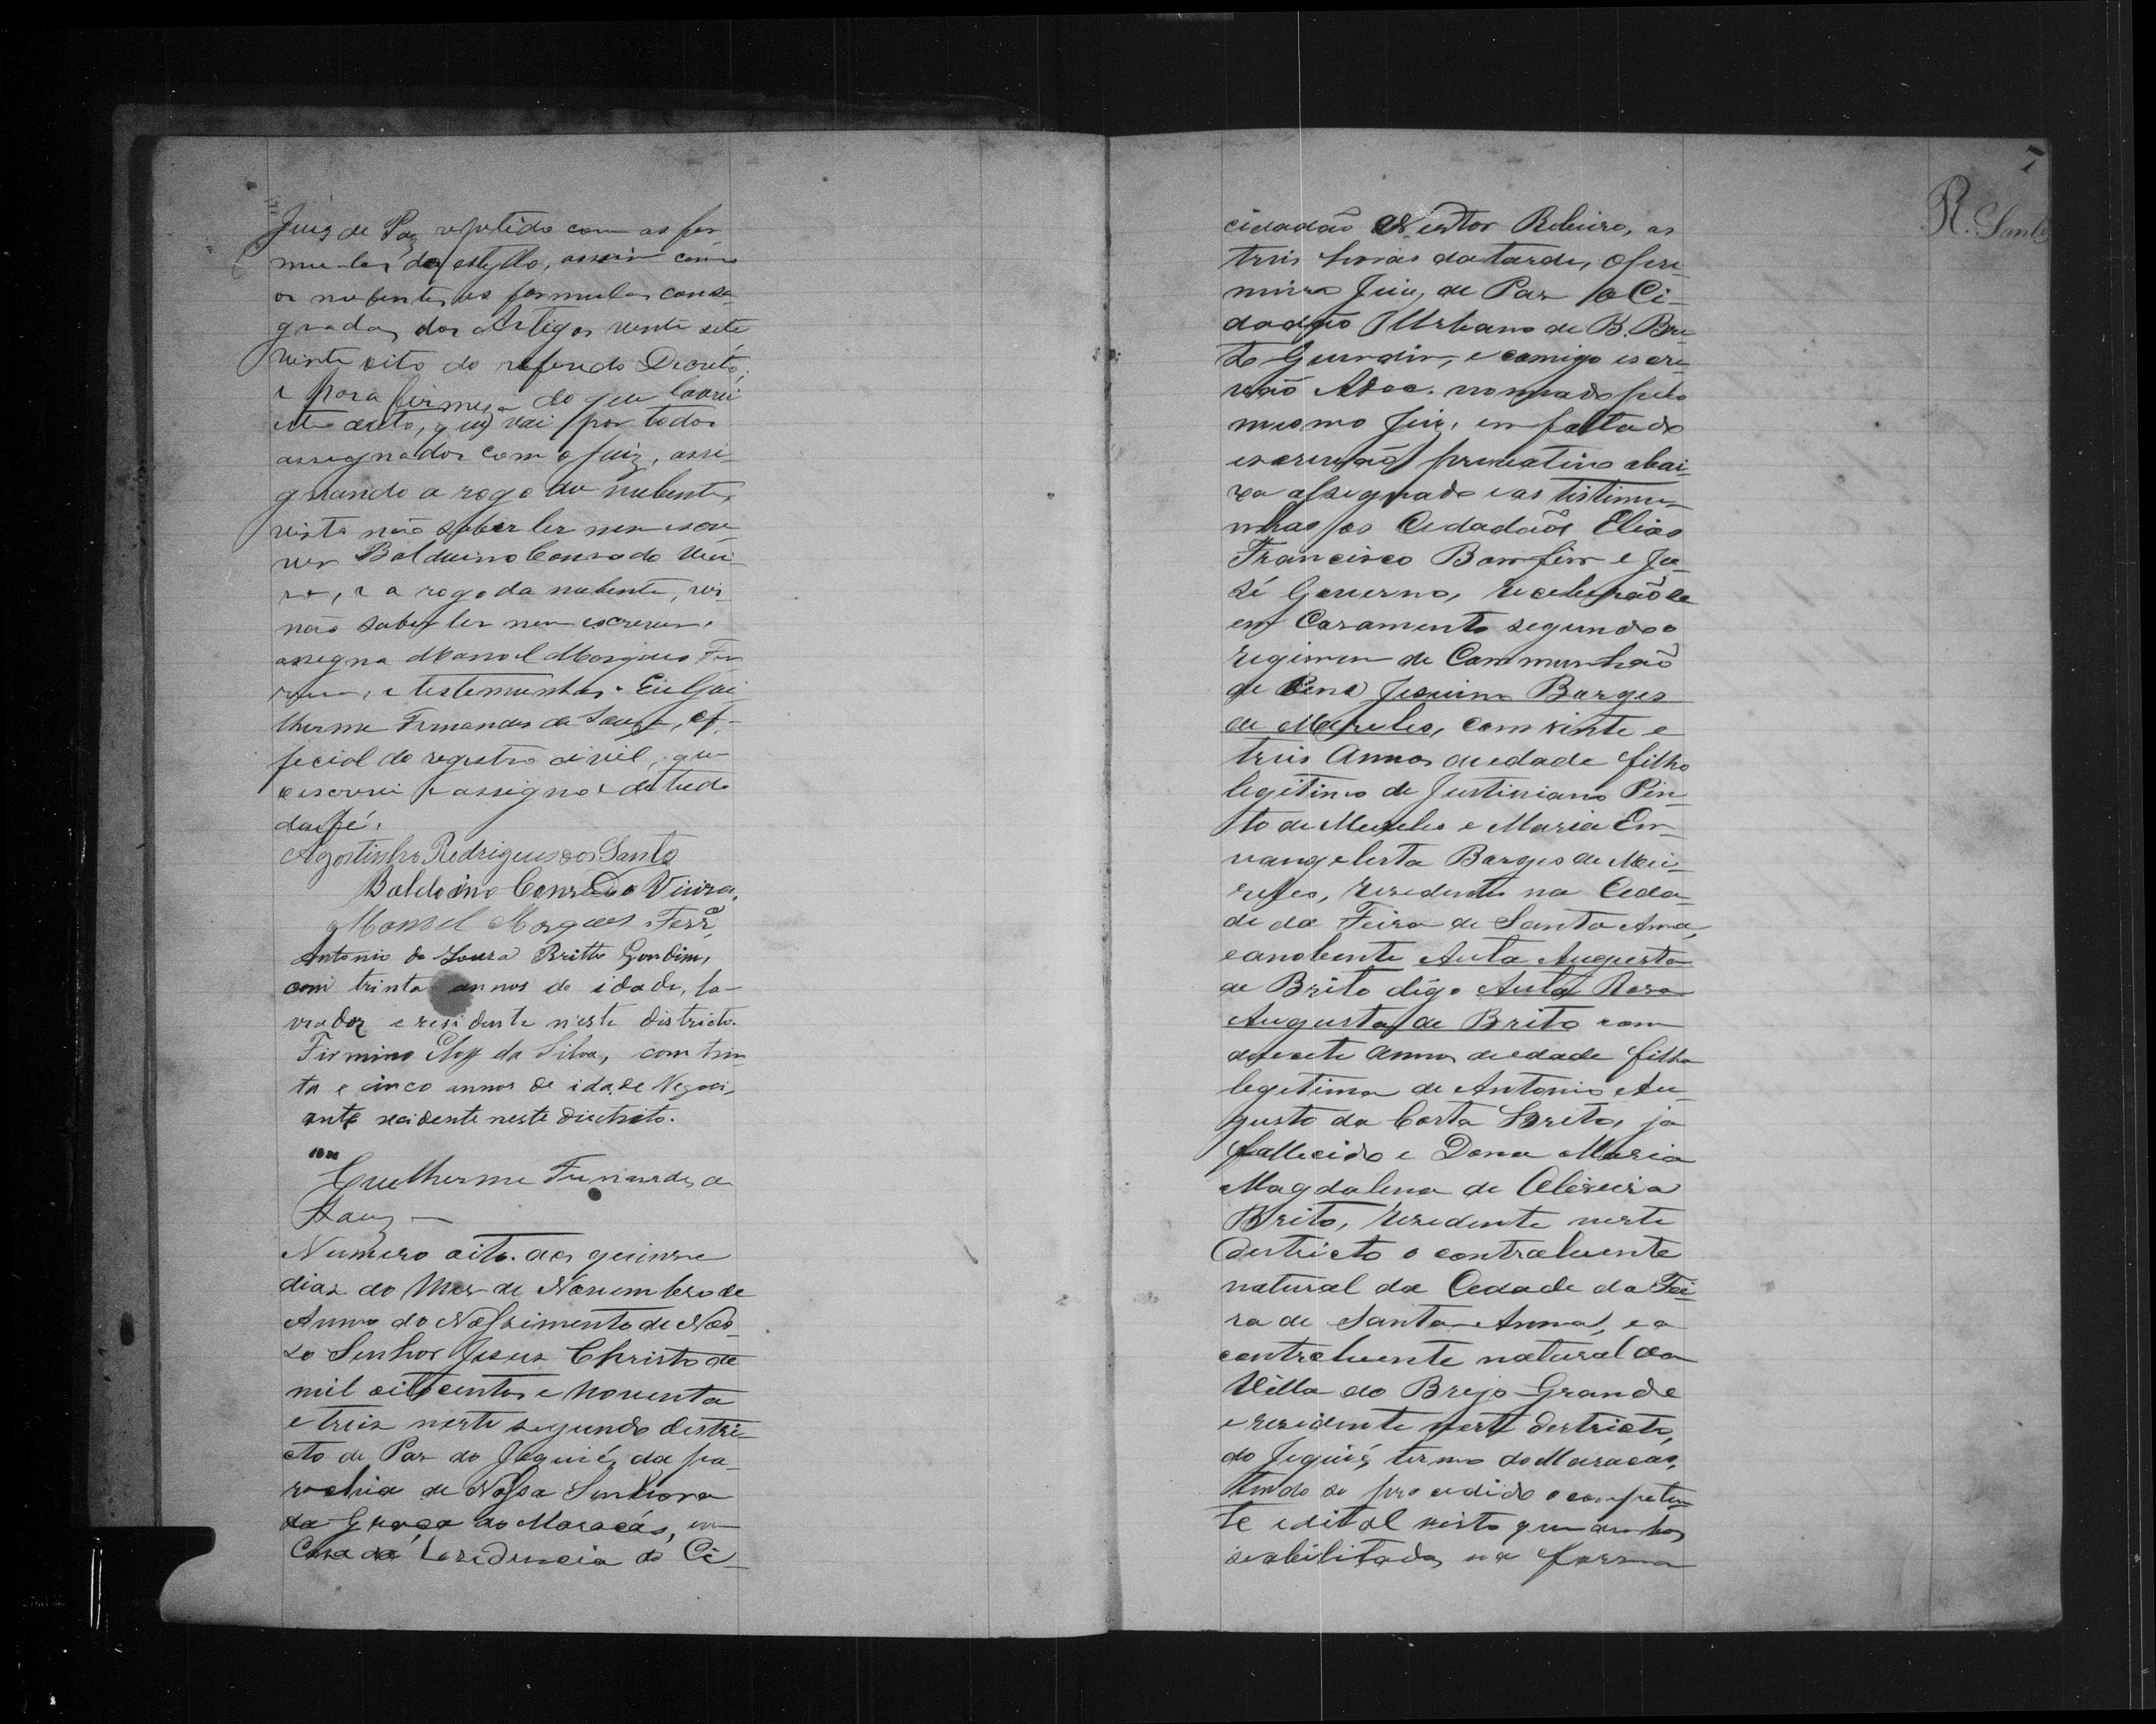 Juiz de Paz repetido com as for
mulas do estyllo, assim como
os nubentes as formulas consa
gradas dos Artigos vente sete
vinte oito do referido Decreto,
e para firmeza do que lavrei
este acto, que vai por todos
assignados com o juiz, assi-
gnando a rogo do nubente,
visto não saber ler nem escre
ver Balduino Conrado Viei-
ra, e a rogo da nubente, por
não saber ler nem escrever,
assigna Manoel Marques Fer
reira, e testemunhas. Eu Gui
lherme Fernandes de Souza, of-
ficial do registro civil, que
escrevi e assigno de tudo
dou fé.
Agostinho Rodrigues dos Santos
Baldoino Conrado Vieira.
Manoel Marques Ferrª
Antonio de Souza Britto Gondim,
com trinta annos de idade, la-
vrador e residente n'este districto.
Firmino Eloy da Silva, com trin
ta e cinco annos de idade Negoci-
ante recidente neste districto.
Guilherme Fernandes de
Souz
Numero oito. aos quinse
dias do Mes de Novembro de
Anno do Nascimento de Nos-
so Senhor Jesus Christo de
mil oitocentos e noventa
e treis neste segundo destri-
cto de Pas do Jequié, da pa-
rochia de Nossa Senhora
da Graça do Maracás, em
Casa da residencia do Ci-
7
R. Santos
cidadão Nestor Ribeiro, as
treis horas da tarde, o pri-
meiro Juiz de Paz o Ci-
dadão Urbano de B. Bri-
to Gondim, e comigo escri-
vão Adoc. nomeado pelo
mesmo Juiz, em falta do
escrivão privativo abai-
xo assignado e as testimu-
nhas os Cedadãos Elias
Francisco Bomfim e Jo-
sé Governo, receberão se
em Casamento segundo o
regimen de Communhão
de Bens Jesuino Borges
de Meireles, com vinte e
treis Annos de edade filho
legitimo de Justiniano Pin-
to de Meireles e Maria Em-
vangelista Borges de Mei-
reles, residentes na Ceda-
de da Feira de Santa Anna,
e a nobente Auta Augusta
de Brito digo Auta Rosa
Augusta de Brito com
desecete annos de edade filha
legetima de Antonio Au-
gusto da Costa Brito, ja
fallecido e Dona Maria
Magdalena de Oliveira
Brito, residente neste
Destricto o contrahente
natural da Cedade da Fei-
ra de Santa Anna, e a
contrahente natural da
Villa do Brejo Grande
e residente neste destricto,
do Jequié, termo do Maracas,
tendo se procedido o competen
te edital visto que ambos
seabilitados na forma